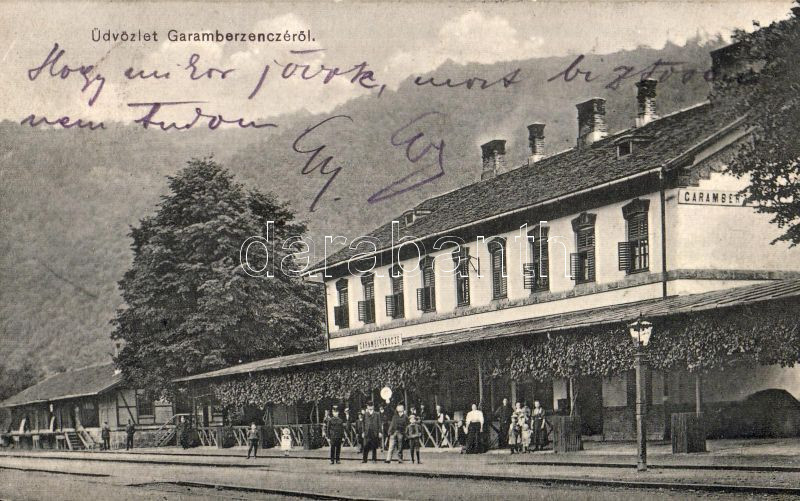 Üdvözlet Garamberzenczéről.
Hogy mikor jövök, most biztosan
nem tudom
Gy
GARAMBER
darabanth
GARAMBERZENCZE